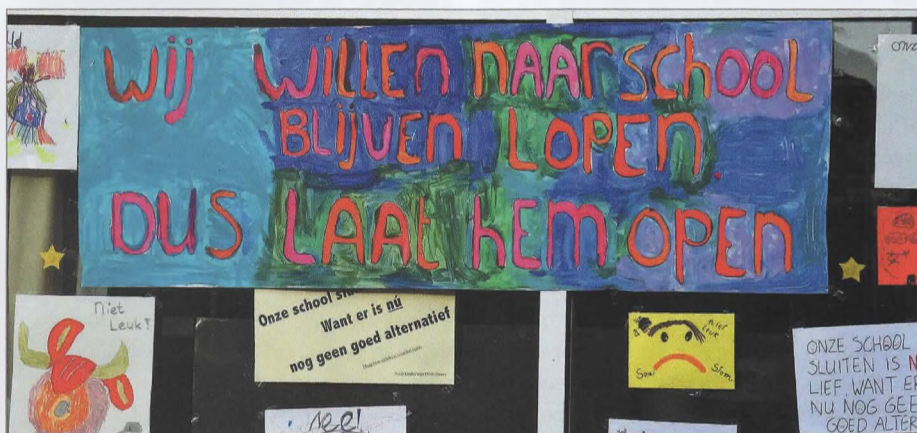 WIJ WILLEN NAAR SCHOOL
BLIJVEN LOPEN.
DUS LAAT HEM OPEN
Niet
Leuk!
Onze school
Want er is nú
nog geen goed alternatief
niet
leuk
Stom
ONZE SCHOOL
SLUITEN IS
LIEF. WANT
NU NOG
GOED